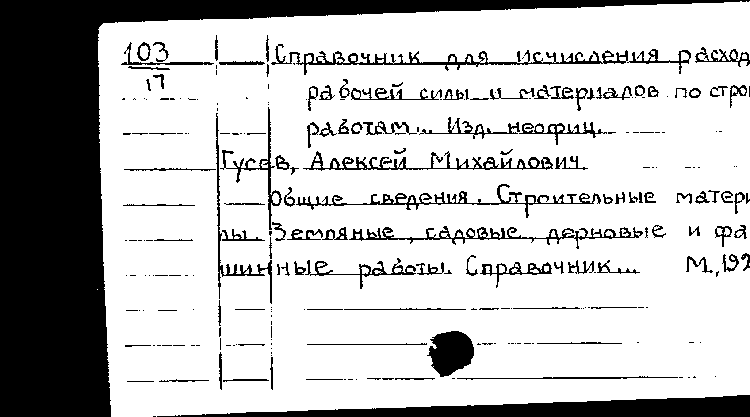 103
17
Справочник для исчисления расход
рабочей силы и материалов по строи
работам... Изд. неофиц.
Гусев, Алексей Михайлович.
Общие сведения. Строительные матери
лы. Земляные, садовые, дерновые и фа
шинные работы. Справочник... М., 192